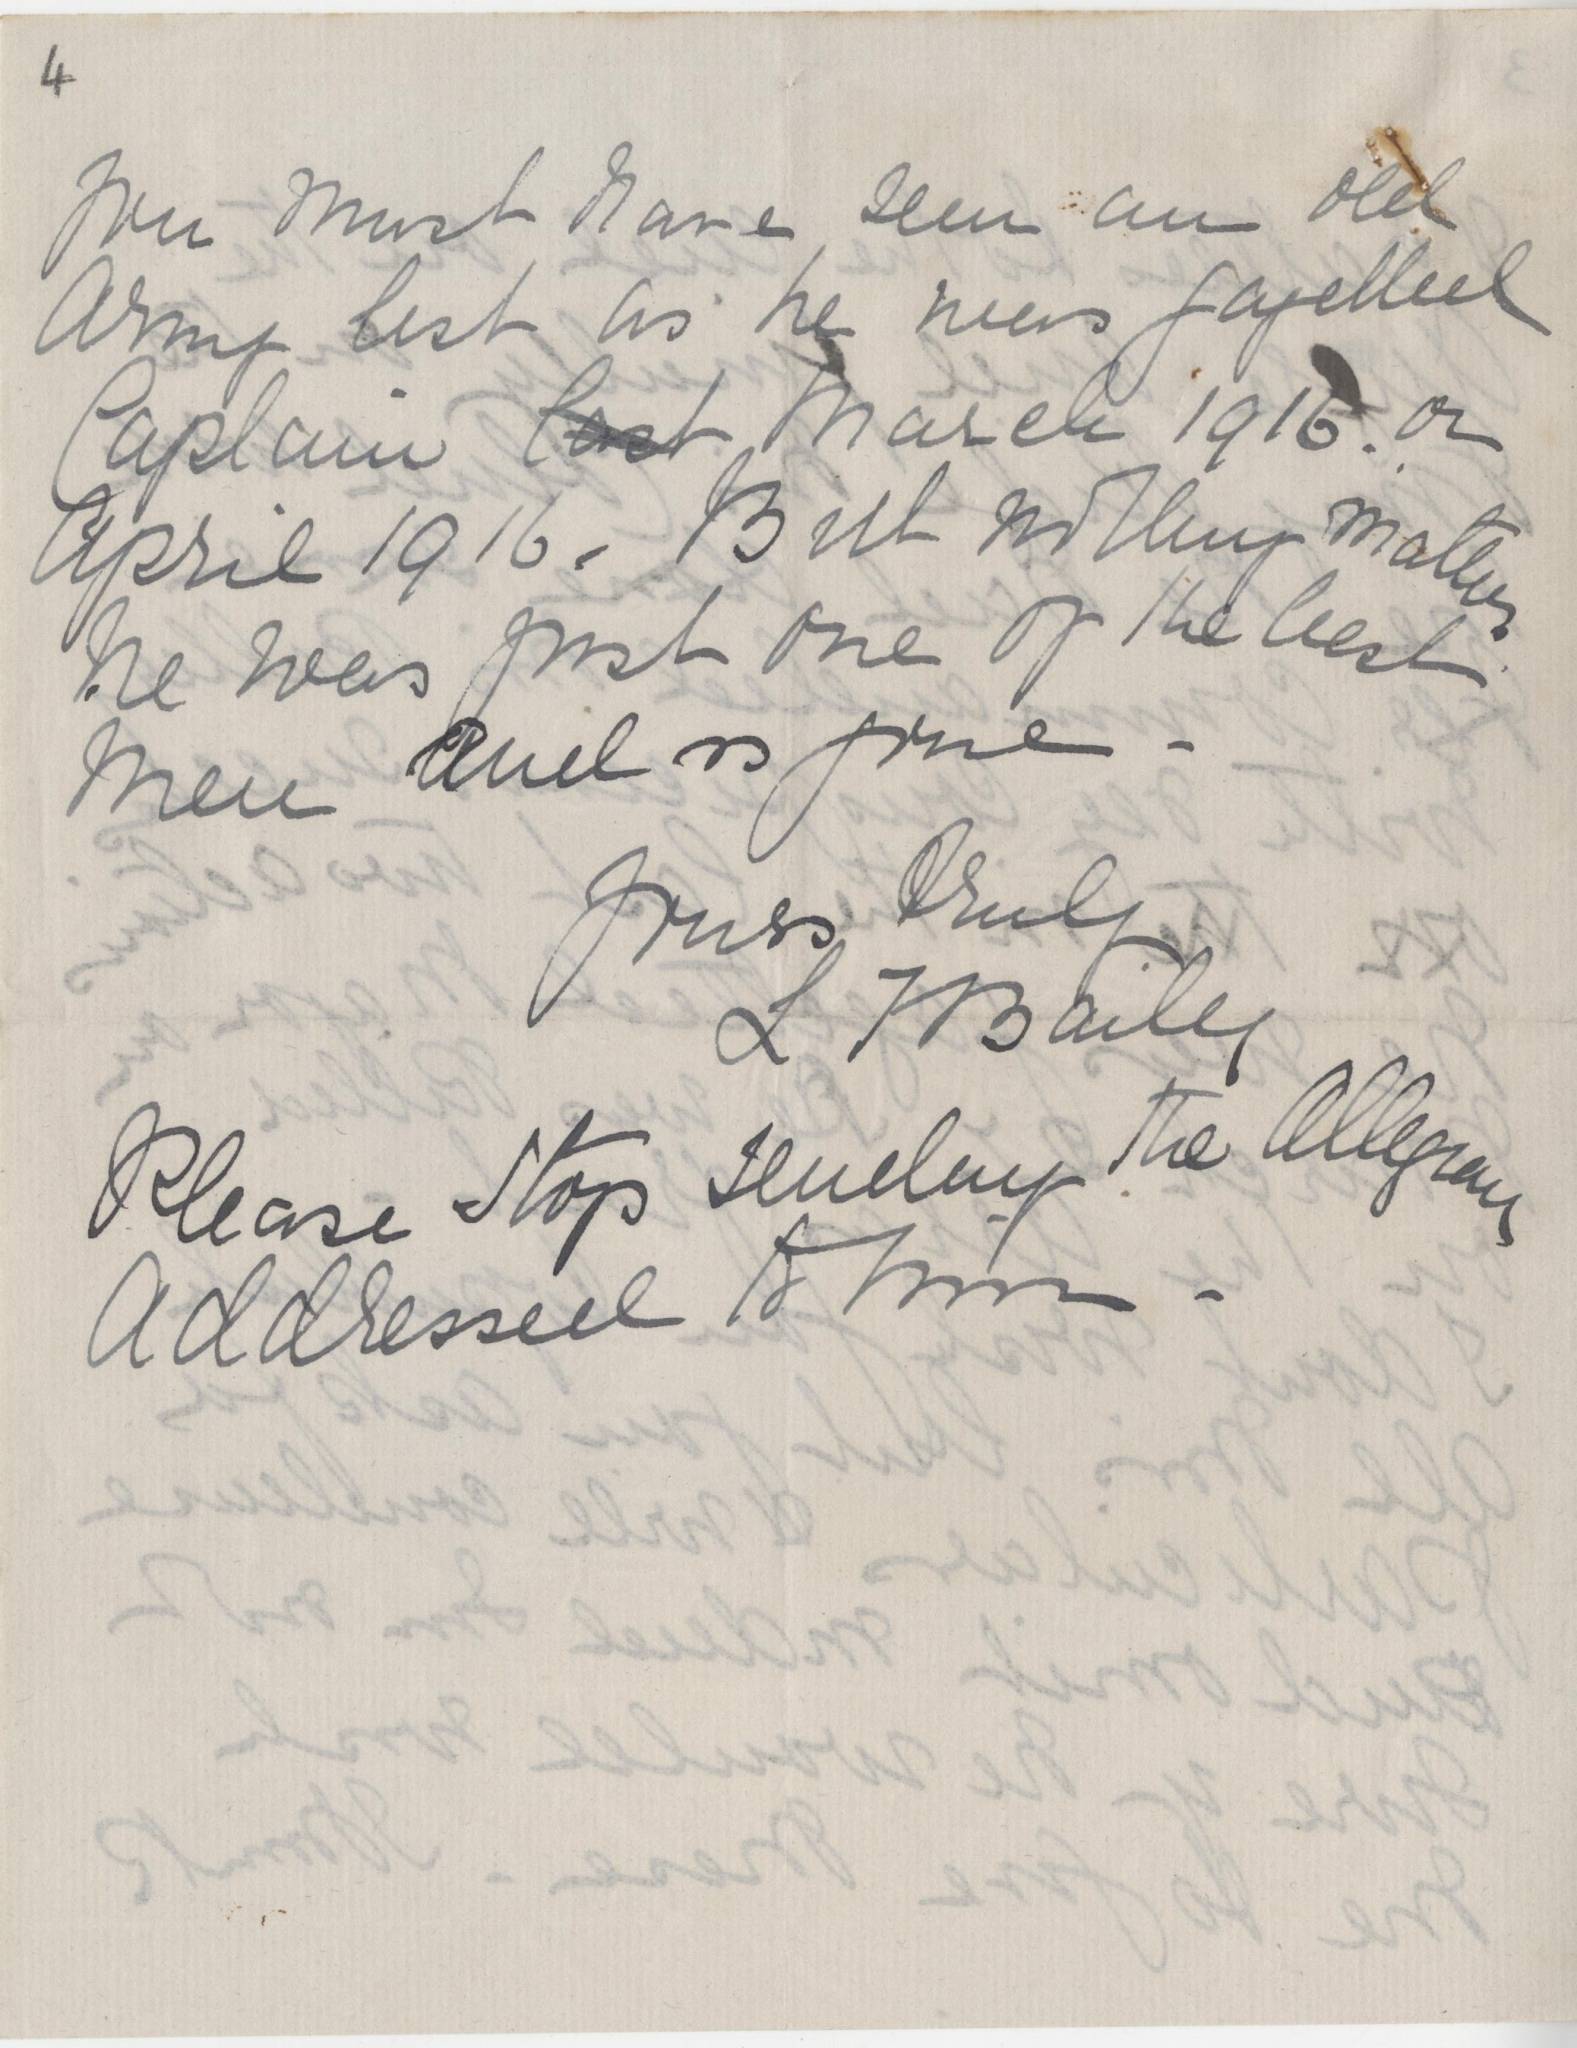 4
you must have seen an old
Army list as he was gazetteed
Captain last March 1916. or
April 1916. But nothing matters
he was just one of the best
Men and is gone -
Yours truly
L F Bailey
Please stop sending the Alleynian
Addressed to him -